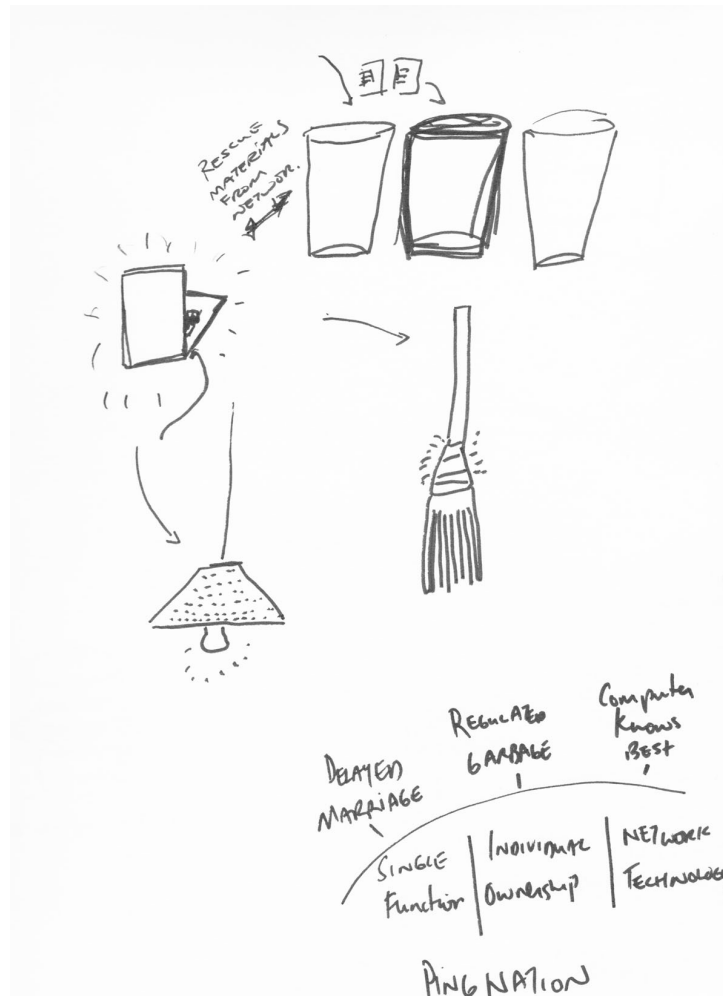 RESCUE
MATERIALS
FROM
NETWORK.
DELAYED
MARRIAGE
REGULATED
GARBAGE
Computer
Knows
BEST
SINGLE
Function
INDIVIDUAL
Ownership
NETWORK
TECHNOLOG
PING NATION